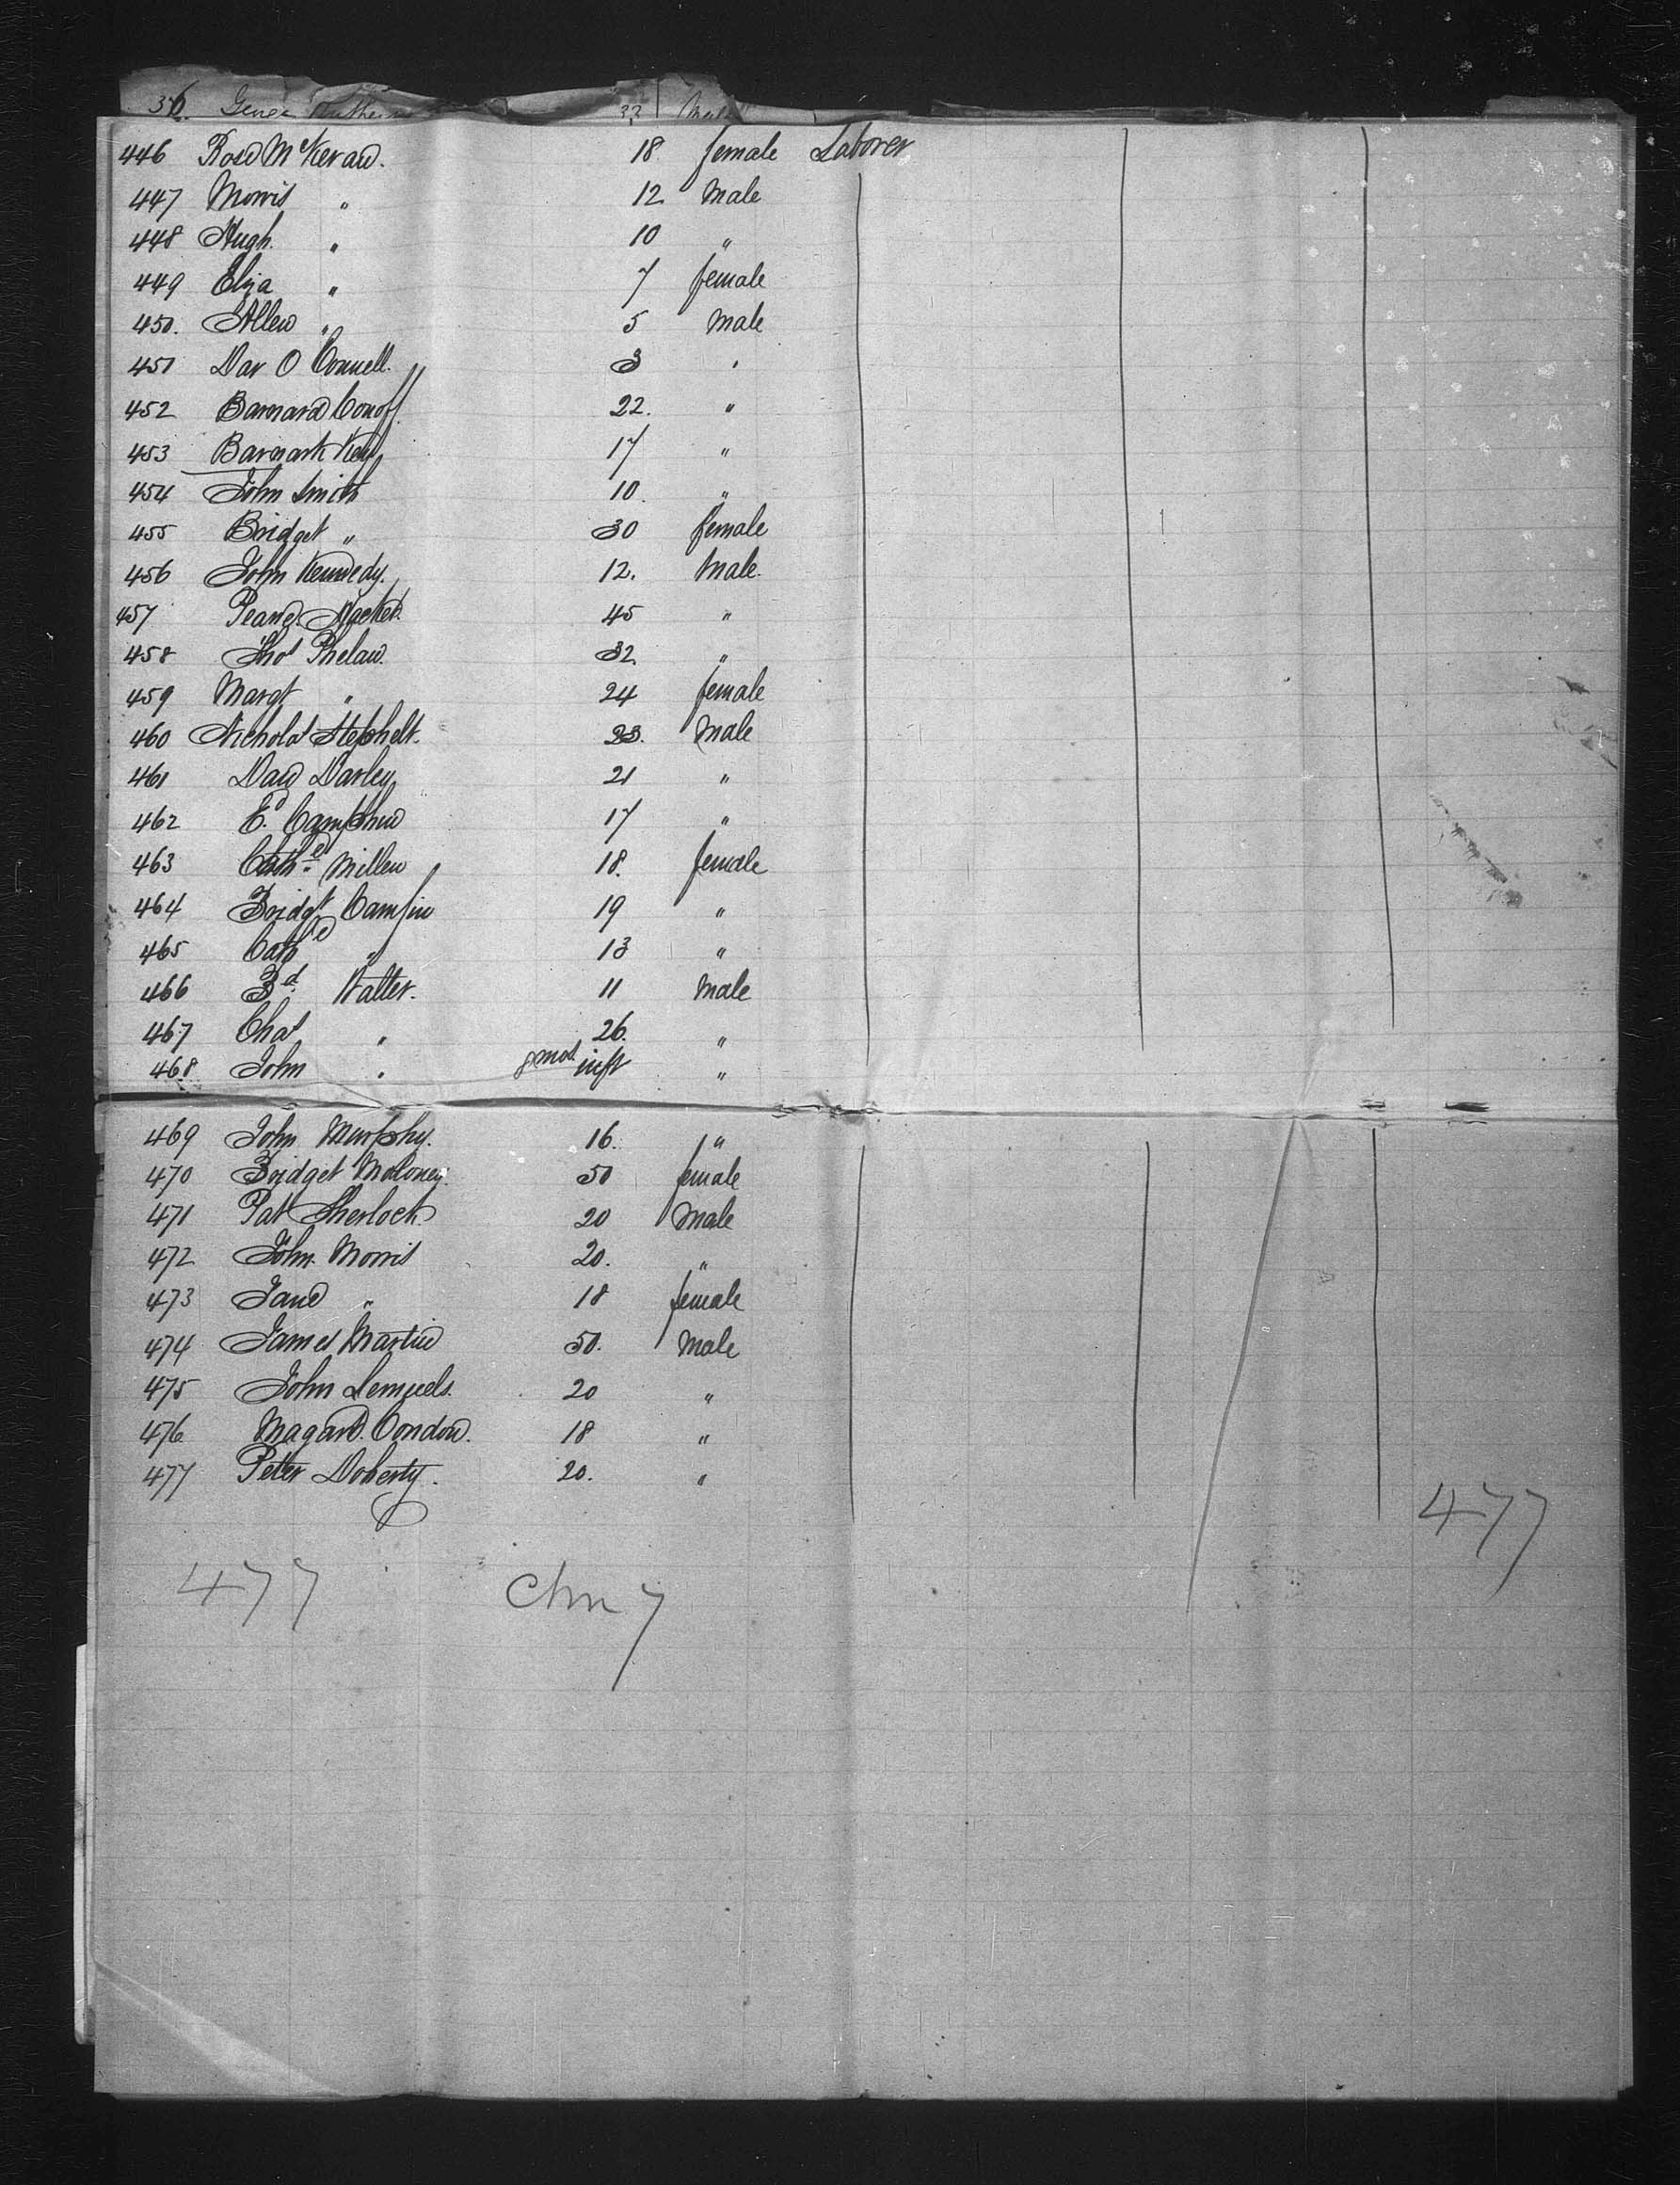 36. 33 Male
446 Rose McKeran. 18. female Laborer
447 Morris " 12 Male
448 Hugh. " 10 "
449 Eliza " 7 female
450. Allen " 5 Male
451 Dav O Connell. 3 "
452 Barnard Conoff. 22. "
453 Barnark Key 17 "
454 John Smith 10. "
455 Bridget " 30 female
456 John Kennedy. 12. Male.
457 45 "
458 Thos Phelan. 32. "
459 Margt " 24 female
460 Nicholas Stephelt. 23. Male
461 Dan Darley 21 "
462 Ed. Camphin 17 "
463 Cathe Millen 18. female
464 Bridgt Camfin 19 "
465 Cathe " 13 "
466 Bd. Walter. 11 Male
467 Chas " 26. "
468 John " 8 mos. inft "
469 John Murphy. 16. "
470 Bridget Moloney. 50 female
471 Pat Sherlock 20 Male
472 John Morris 20. "
473 Jane " 18 female
474 James Martin 50. Male
475 John Lemuels. 20 "
476 Magard. Condon. 18 "
477 Peter Doherty. 20. "
477
477 Chn 7